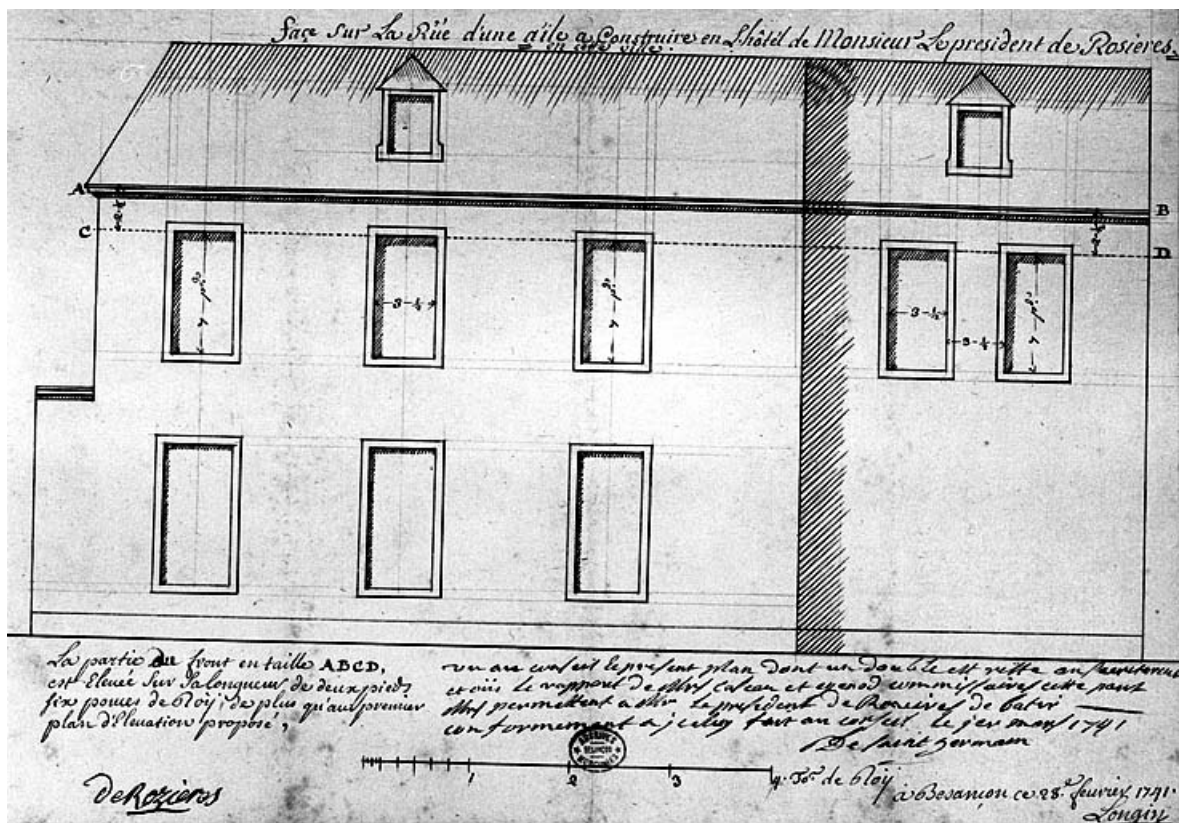 façe Sur La Rüe d'une aile a Construire en L'hôtel de Monsieur Le president de Rosieres
en cete ville.
A
B
2 ½
2 ½
C
D
7 pds
3 ½
7 pds
3 ½
3 ½
7 pds
La partie du front en taille ABCD,
est Elevée Sur Sa longueur de deux pieds
six pouces de Roy, de plus qu'au premier
plan d'Elevation proposé,
vu au conseil le present plan dont un double est resté au secretariat
et oüis le rapport de Mrs et commissaires cette part
Mrs permettent a Mr Le president de Rozieres de batir
conformement a jceluy fait au conseil le jer mars 1741
De Saint Germain
ARCHIVES
BESANÇON
1
2
3
4. To.s de Roy
à Besançon ce 28.e fevrier 1741.
Longin
deRozieres